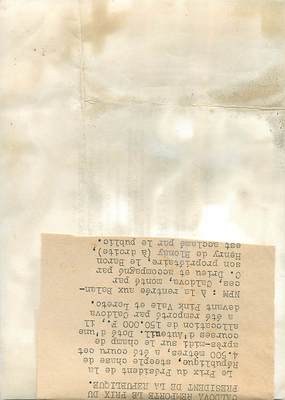 CALDOVA REMPORTE LE PRIX DU
PRESIDENT DE LA REPUBLIQUE.
Le Prix du Président de la
République, steeple chase de
4.500 mètres, a été couru cet
après-midi sur le champ de
courses d'Auteuil. Doté d'une
allocation de 150.000 F., il
a été remporté par Caldova
devant Pink Vale et Loreto.
NPM : A la rentrée aux Balan-
ces, Caldova, monté par
C. Drieu et accompagné par
son propriétaire, le Baron
Henry de Blonay (à droite),
est acclamé par le public.